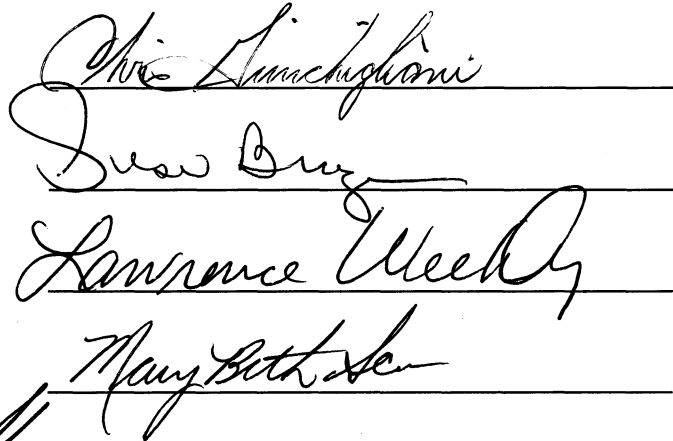 Chris Giunchigliani
Susan
Lawrence Weekly
Mary Beth